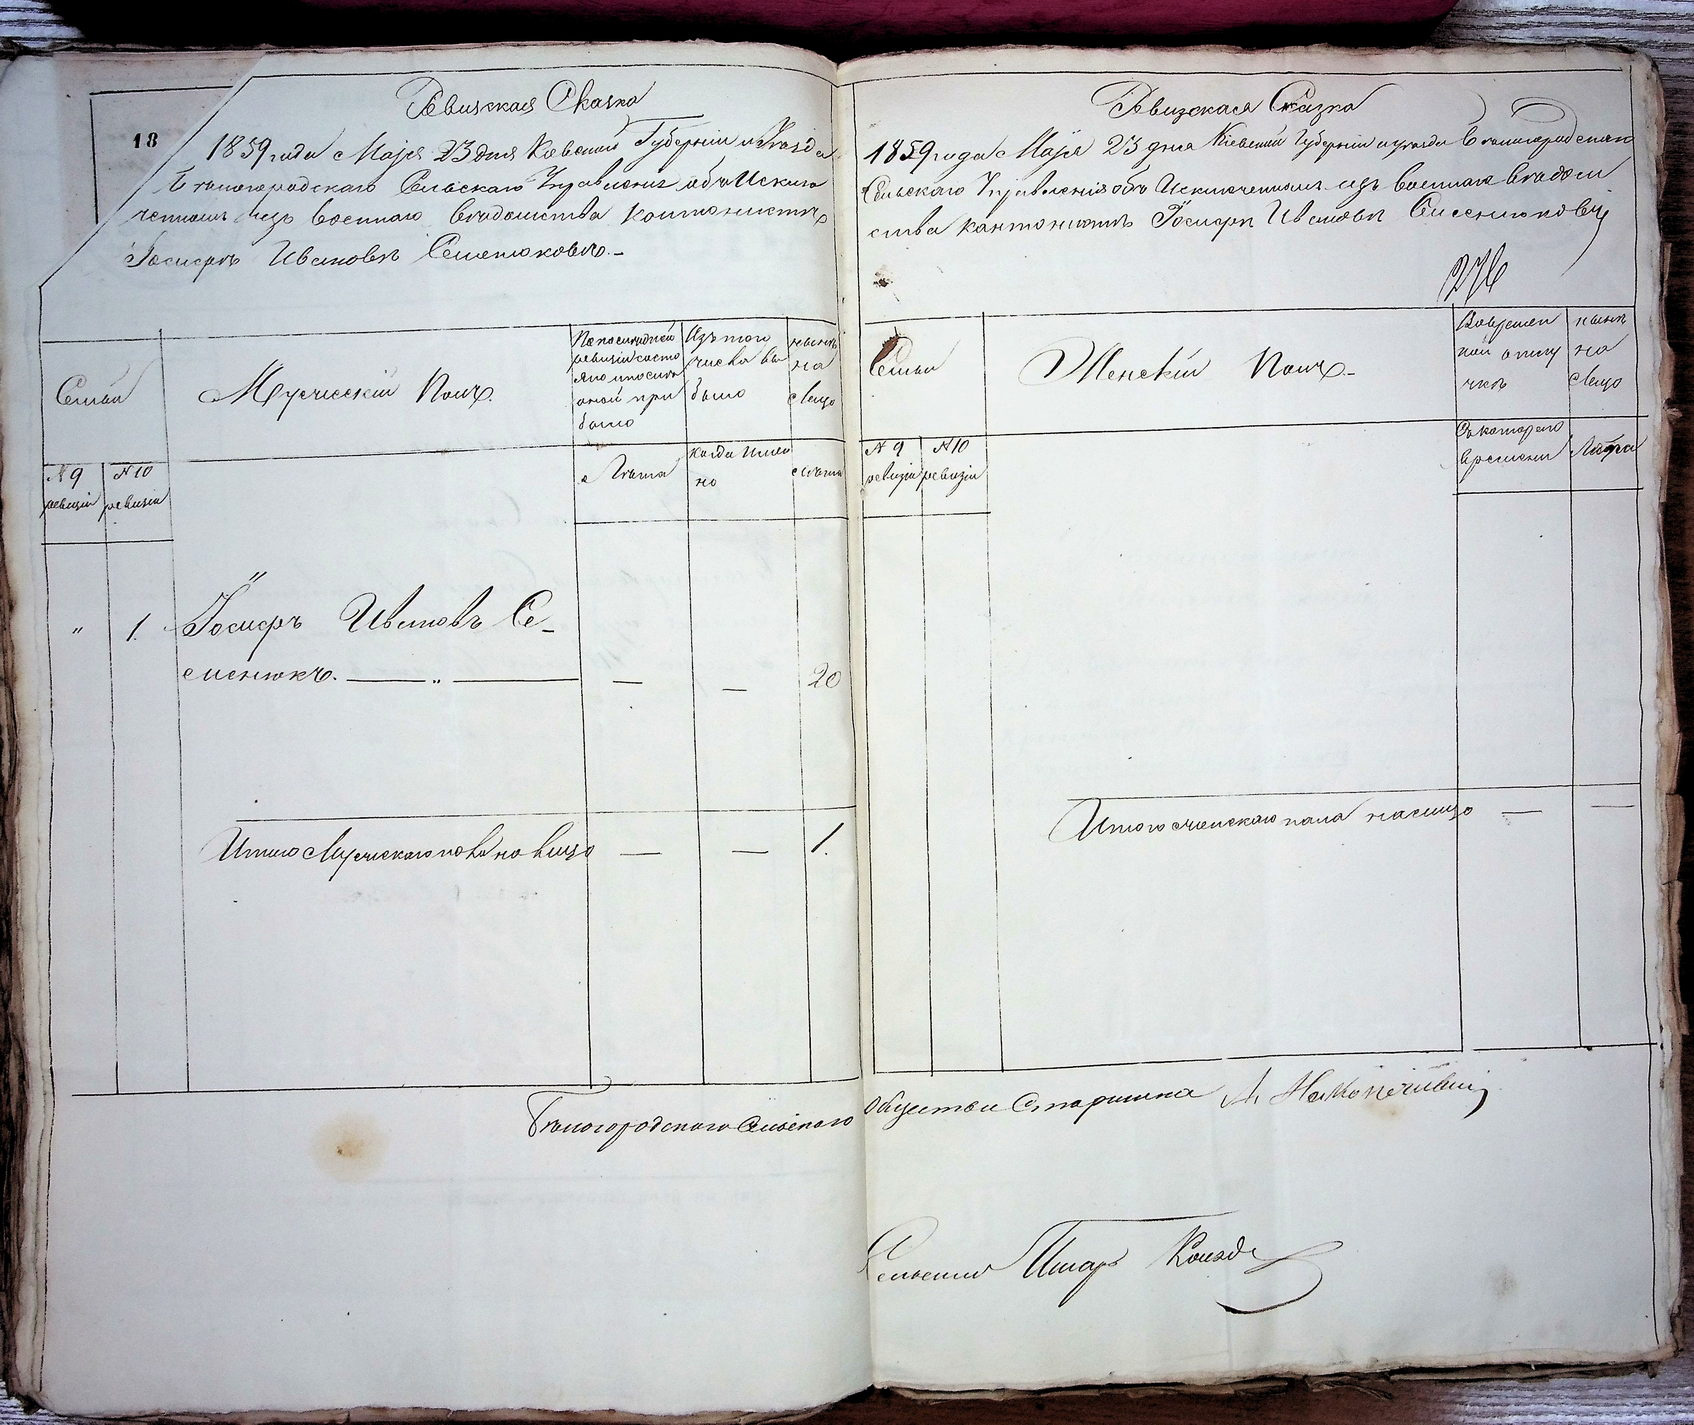 Ревизская Сказка
18
1859 года Маія 23 дня Кіевской Губерніи и Уѣзда
Бѣлогородскаго Сельскаго Управленія объ Исклю
ченномъ изъ военнаго вѣдомства кантонистѣ
Іосифѣ Ивановѣ Семенюковѣ.-
Семьи
Мужескій Полъ.
По послѣдней ревизіи состо яло и послѣ оной при было
Изъ того числа вы было
нынѣ на лицо
№ 9 ревизіи
№ 10 ревизіи
Лѣта
когда имен но
лѣта
" 1. Іосифъ Ивановъ Се-
менюкъ. — " — — — 20
Итого Мужескаго пола на лицо — — 1.
Ревизская Сказка
1859 года Маія 23 дня Кіевской Губерніи и уѣзда Бѣлогородскаго
Сельскаго Управленія объ Исключенномъ изъ военнаго вѣдом
ства кантонистѣ Іосифѣ Ивановѣ Семенюковѣ
276
Семьи
Женскій Полъ.-
Во времен ной отлу чкѣ
нынѣ на лицо
№ 9 ревизіи
№ 10 ревизіи
Съ котораго времени
Лѣта
Итого женскаго пола на лицо — —
Бѣлогородскаго Сельскаго Общества Старшина
Сельскій Писарь